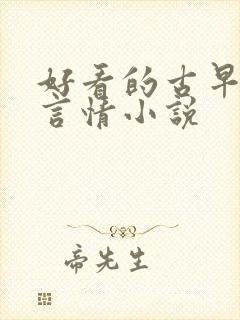 好看的古早
言情小说
帝先生